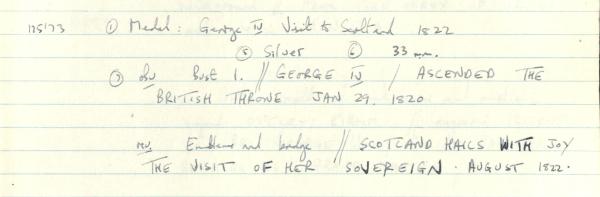 175'73 ① Medal: George IV Visit to Scotland 1822
⑤ Silver ⑥ 33 mm.
⑦ obv Bust l. // GEORGE IV / ASCENDED THE
BRITISH THRONE JAN 29. 1820
rev. Emblems and badge // SCOTLAND HAILS WITH JOY
THE VISIT OF HER SOVEREIGN · AUGUST 1822·